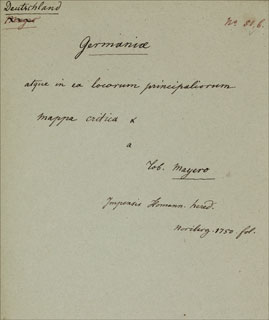 Deutschland
Germaniæ
atque in ea locorum principaliorum
mappa critica &
a
Tob. Mayero
Impensis Homann. hered.
Noribg. 1750 fol.